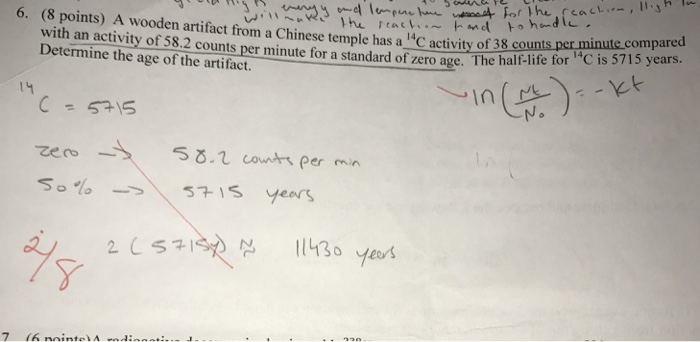 energy and temperature for the reaction. High
will make the reaction hard to handle.
6. (8 points) A wooden artifact from a Chinese temple has a ¹⁴C activity of 38 counts per minute compared
with an activity of 58.2 counts per minute for a standard of zero age. The half-life for ¹⁴C is 5715 years.
Determine the age of the artifact.
ln(Nt/N₀) = -kt
¹⁴C = 5715
zero → 58.2 counts per min
50% → 5715 years
2(5715y) ≈ 11430 years
2/8
7 (6 points) A radioactive